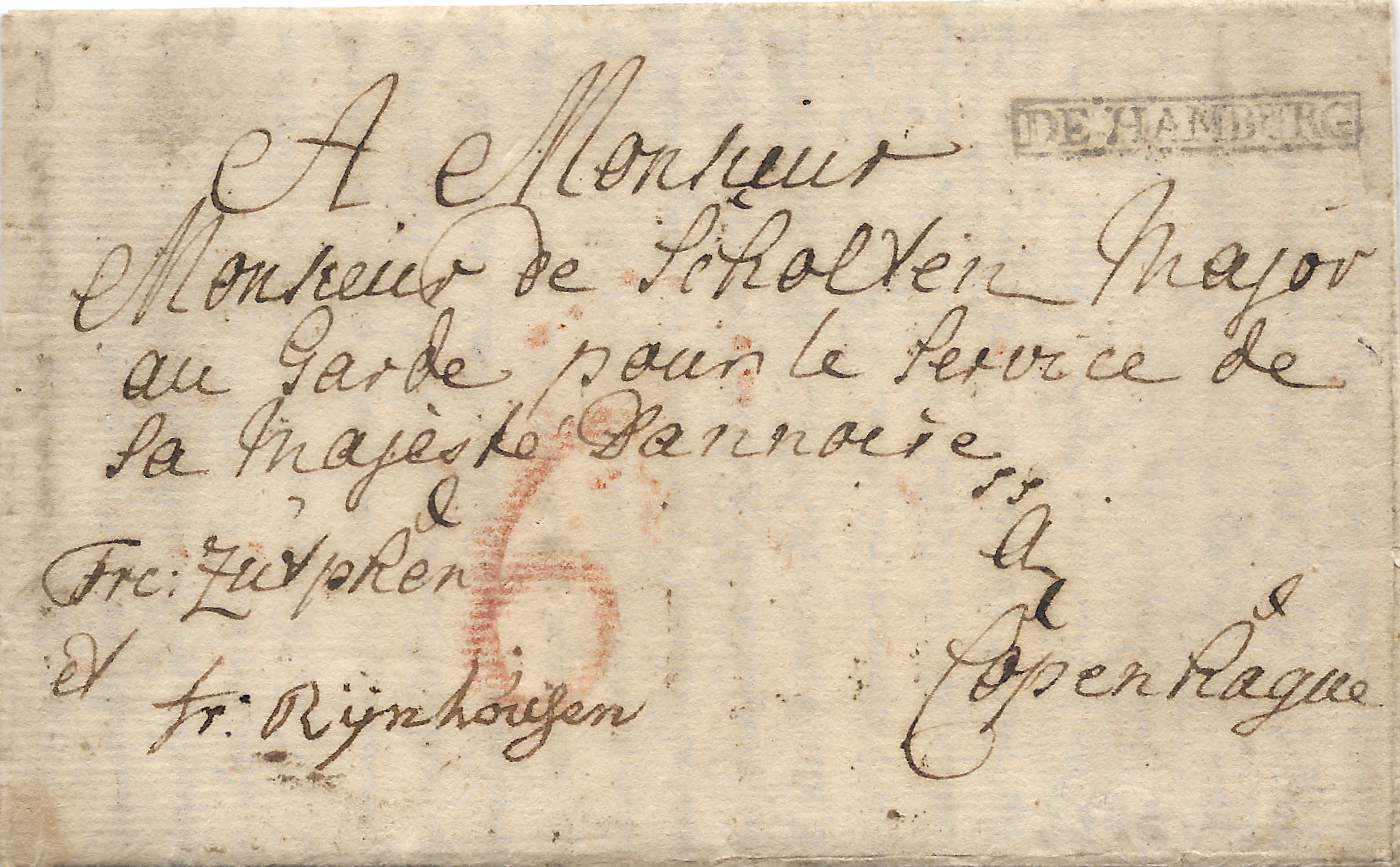 DE HAMBURG
A Monsieur
Monsieur de Scholten Major
au Garde pour le Service de
sa Majèsté Dannoise
Frc: Zutphen
a
6
et
fr: Rijnhousen
Copenhague